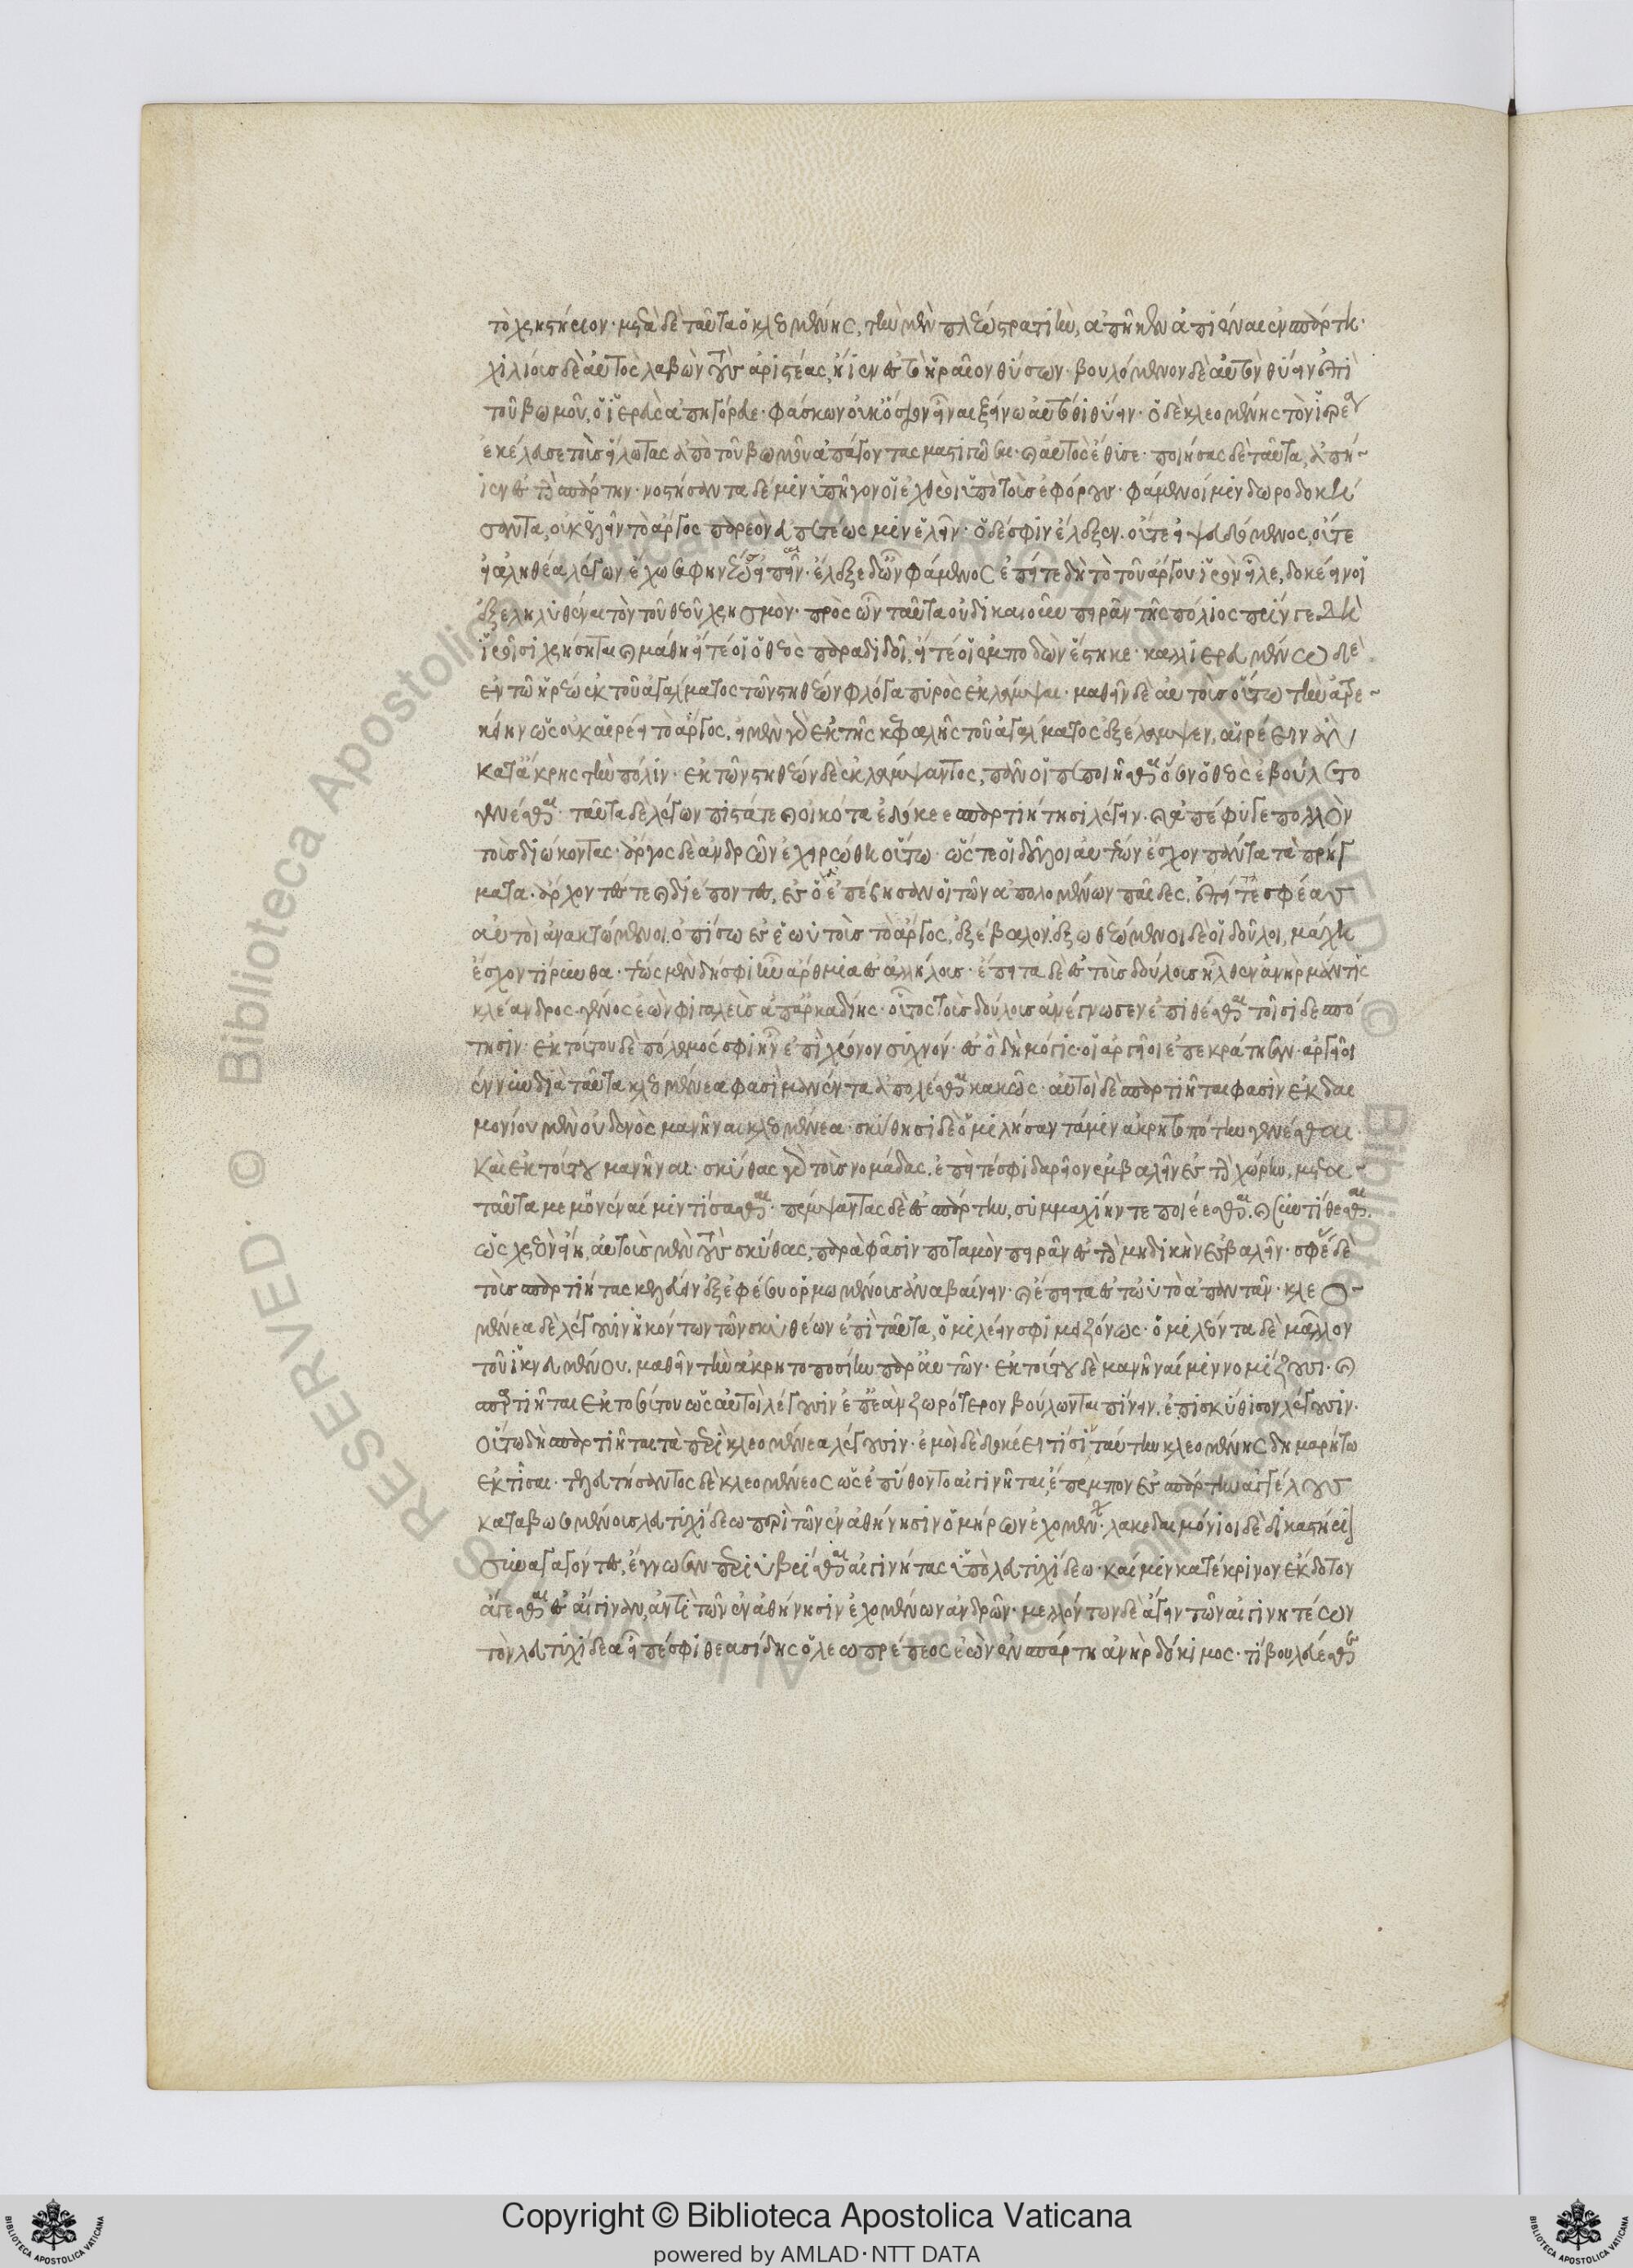 τὸ χρηστήριον· μετὰ δὲ ταῦτα ὁ κλεομένης, τὴν μὲν πλέω στρατιὴν, ἀπῆκεν ἀπιέναι ἐν σπάρτη·
χιλίοις δὲ αὐτὸς λαβὼν τοὺς ἀριστέας, ἤιεν ἐς τὸ ἥραιον θύσων· βουλόμενον δὲ αὐτὸν θύειν ἐπὶ
τοῦ βωμοῦ, ὁ ἱερεὺς ἀπηγόρευε· φάσκων οὐκ ὅσιον εἶναι ξείνω αὐτόθι θύειν· ὁ δὲ κλεομένης τὸν ἱρέα
ἐκέλευσε τοὺς εἵλωτας ἀπὸ τοῦ βωμοῦ ἀπάγοντας μαστιγῶσαι· καὶ αὐτὸς ἔθυσε· ποιήσας δὲ ταῦτα, ἀπή
ιεν ἐς τὴν σπάρτην· νοστήσαντα δέ μιν ὑπῆγον οἱ ἐχθροὶ ὑπὸ τοὺς ἐφόρους· φάμενοί μιν δωροδοκή
σαντα, οὐκ ἑλεῖν τὸ ἄργος παρεὸν εὐπετέως μιν ἑλεῖν· ὁ δέ σφιν ἔλεξεν. οὔτε εἰ ψευδόμενος, οὔτε
εἰ ἀληθέα λέγων ἔχω σαφηνέως εἶπαι· ἔλεξε δ' ὦν φάμενος ἐπείτε δὴ τὸ τοῦ ἄργου ἱρὸν εἷλε, δοκέειν οἱ
ἐξεληλυθέναι τὸν τοῦ θεοῦ χρησμὸν· πρὸς ὦν ταῦτα οὐ δικαιοῦν πειρᾶν τῆς πόλιος πρίν γε δὴ
ἱροῖσι χρήσηται καὶ μάθη εἴτέ οἱ ὁ θεὸς παραδιδοῖ, εἴτέ οἱ ἐμποδὼν ἕστηκε· καλλιερευμένω δὲ
ἐν τῶ ἡραίω ἐκ τοῦ ἀγάλματος τῶν στηθέων φλόγα πυρὸς ἐκλάμψαι· μαθεῖν δὲ αὐτὸς οὕτω τὴν ἀτρε
κείην ὡς οὐκ αἱρέει τὸ ἄργος, εἰ μὲν γὰρ ἐκ τῆς κεφαλῆς τοῦ ἀγάλματος ἐξέλαμψεν, αἱρέειν ἂν
κατάκρης τὴν πόλιν· ἐκ τῶν στηθέων δὲ ἐκλάμψαντος, πᾶν οἱ πεποιῆσθαι ὅσον ὁ θεὸς ἐβούλετο
γενέσθαι· ταῦτα δὲ λέγων πιστά τε καὶ οἰκότα ἐδόκεε σπαρτιήτησι λέγειν· καὶ ἀπέφυγε πολλὸν
τοὺς διώκοντας· ἄργος δὲ ἀνδρῶν ἐχηρώθη οὕτω· ὥστε οἱ δοῦλοι αὐτῶν ἔσχον πάντα τὰ πρήγ
ματα· ἄρχοντές τε καὶ διέποντες, ἐς ὃ ἐπέβησαν οἱ τῶν ἀπολομένων παῖδες. ἐπεί τέ σφέας
αὐτοὶ ἀνακτώμενοι ὀπίσω ἐς ἑωυτοὺς τὸ ἄργος, ἐξέβαλον. ἐξωθεώμενοι δὲ οἱ δοῦλοι, μάχη
ἔσχον τίρυνθα· τέως μὲν δή σφι ἦν ἄρθμια ἐς ἀλλήλους· ἔπειτα δὲ ἐς τοὺς δούλους ἦλθεν ἀνὴρ μάντις
κλέανδρος γένος ἐὼν φιγαλεὺς ἀπ' ἀρκαδίης· οὗτος τοὺς δούλους ἀνέγνωσεν ἐπιθέσθαι τοῖσι δεσπό
τησιν· ἐκ τούτου δὲ πόλεμός σφι ἦν ἐπὶ χρόνον συχνόν· ἐς ὃ δὴ μόγις οἱ ἀργεῖοι ἐπεκράτησαν· ἀργεῖοι
ἐν νυν διὰ ταῦτα κλεομένεα φασὶ μανέντα ἀπολέσθαι κακῶς· αὐτοὶ δὲ σπαρτιῆται φασὶν ἐκ δαι
μονίου μὲν οὐδενὸς μανῆναι κλεομένεα· σκύθησι δὲ ὁμιλήσαντά μιν ἀκρητοπότην γενέσθαι·
καὶ ἐκ τούτου μανῆναι· σκύθας γὰρ τοὺς νομάδας. ἐπείτέ σφι δαρεῖον ἐμβαλεῖν ἐς τὴν χώρην, μετὰ
ταῦτα μεμονέναί μιν τίσασθαι· πέμψαντας δὲ ἐς σπάρτην, συμμαχίην τε ποιέεσθαι, καὶ συντίθεσθαι
ὡς χρεὸν εἴη, αὐτοὺς μὲν τοὺς σκύθας, παρὰ φᾶσιν ποταμὸν πειρᾶν ἐς τὴν μηδικὴν ἐσβαλεῖν· σφέας δὲ
τοὺς σπαρτιήτας κελεύειν ἐξ ἐφέσου ὁρμωμένους ἀναβαίνειν· καὶ ἔπειτα ἐς τὠυτὸ ἀπαντᾶν· κλεο
μένεα δὲ λέγουσιν ἡκόντων τῶν σκυθέων ἐπὶ ταῦτα, ὁμιλέειν σφι μεζόνως· ὁμιλέοντα δὲ μᾶλλον
τοῦ ἱκνευμένου. μαθεῖν τὴν ἀκρητοποσίην παρ' αὐτῶν· ἐκ τούτου δὲ μανῆναί μιν νομίζουσι· καὶ
σπαρτιῆται ἐκ τοσούτου ὡς αὐτοὶ λέγουσιν ἐπεὰν ζωρότερον βούλωνται πίνειν. ἐπισκύθισον λέγουσιν.
οὕτω δὴ σπαρτιῆται τὰ περὶ κλεομένεα λέγουσιν· ἐμοὶ δὲ δοκέει τίσιν ταύτην κλεομένης δημαρήτω
ἐκτίσαι· τελευτήσαντος δὲ κλεομένεος ὡς ἐπύθοντο αἰγινῆται, ἔπεμπον ἐς σπάρτην ἀγγέλους
καταβωσομένους λευτυχίδεω περὶ τῶν ἐν ἀθήνησιν ὁμήρων ἐχομένων· λακεδαιμόνιοι δὲ δικαστήριον
συναγαγόντες, ἔγνωσαν περιυβρίσθαι αἰγινήτας ὑπὸ λευτυχίδεω· καί μιν κατέκρινον ἔκδοτον
ἄγεσθαι ἐς αἴγιναν, ἀντὶ τῶν ἐν ἀθήνησιν ἐχομένων ἀνδρῶν· μελλόντων δὲ ἄγειν τῶν αἰγινητέων
τὸν λευτυχίδεα εἶπέ σφι θεασίδης ὁ λεωπρέπεος ἐὼν ἐν σπάρτη ἀνὴρ δόκιμος· τί βουλεύεσθε
Copyright © Biblioteca Apostolica Vaticana
powered by AMLAD·NTT DATA